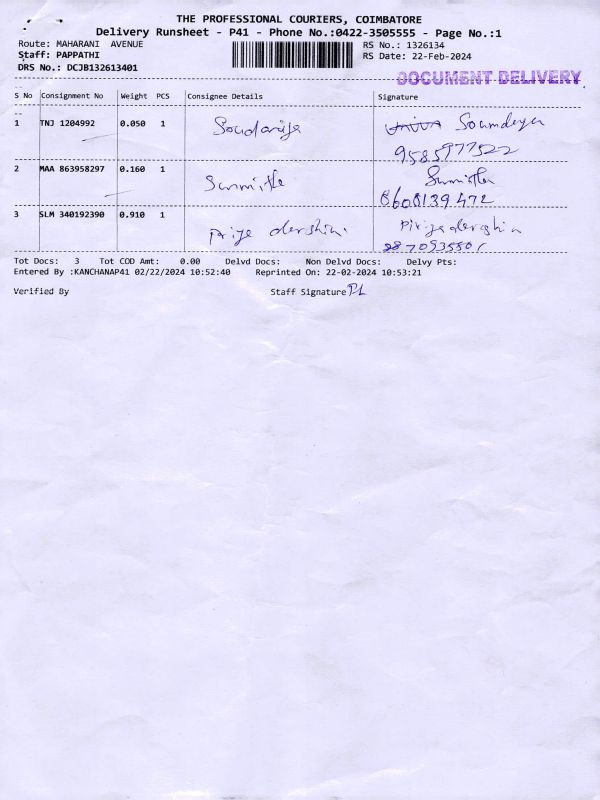 THE PROFESSIONAL COURIERS, COIMBATORE
Delivery Runsheet - P41 - Phone No.:0422-3505555 - Page No.:1
Route: MAHARANI AVENUE
RS No.: 1326134
Staff: PAPPATHI
RS Date: 22-Feb-2024
DRS No.: DCJB132613401
DOCUMENT DELIVERY
S No Consignment No Weight PCS Consignee Details Signature
1 TNJ 1204992 0.050 1
9585977522
2 MAA 863958297 0.160 1 Sunmithe Sunmitha
8608139472
3 SLM 340192390 0.910 1 Priye dershini
Tot Docs: 3 Tot COD Amt: 0.00 Delvd Docs: Non Delvd Docs: Delvy Pts:
Entered By :KANCHANAP41 02/22/2024 10:52:40 Reprinted On: 22-02-2024 10:53:21
Verified By Staff Signature